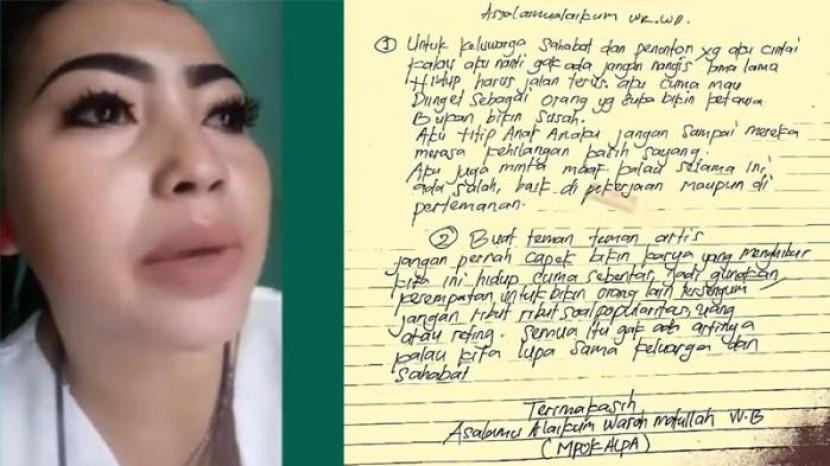 Assalamualaikum WR. WB.
① Untuk keluwarga sahabat dan penonton yg aku cintai
kalau aku nanti gak ada jangan nangis lama lama
Hidup harus jalan terus. aku cuma mau
Diinget sebagai orang yg suka bikin ketawa
Bukan bikin susah.
Aku titip Anak Anaku jangan sampai mereka
merasa kehilangan kasih sayang.
Aku juga minta maaf kalau selama ini,
ada salah, baik di pekerjaan maupun di
pertemanan.
② Buat teman teman artis
jangan pernah capek bikin karya yang menghibur
kita ini hidup cuma sebentar, jadi gunakan
kesempatan untuk bikin orang lain tersenyum
jangan ribut ribut soal popularitas, uang
atau reting. semua itu gak ada artinya
kalau kita lupa sama keluarga dan
sahabat
Terimakasih
Asalamu Alaikum Warahmatullah W.B
(MPOK ALPA)